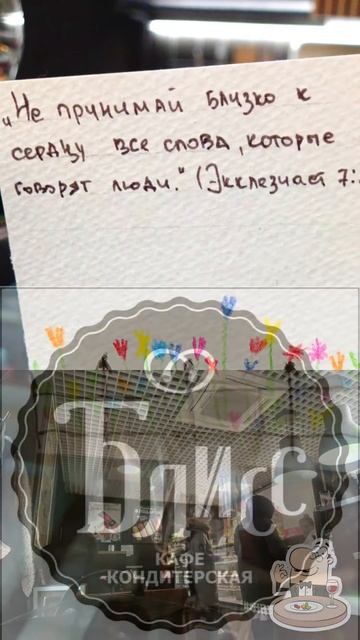 „Не принимай близко к
сердцу все слова, которые
говорят люди.“ (Экклезиаст 7:
Блисс
КАФЕ
-КОНДИТЕРСКАЯ